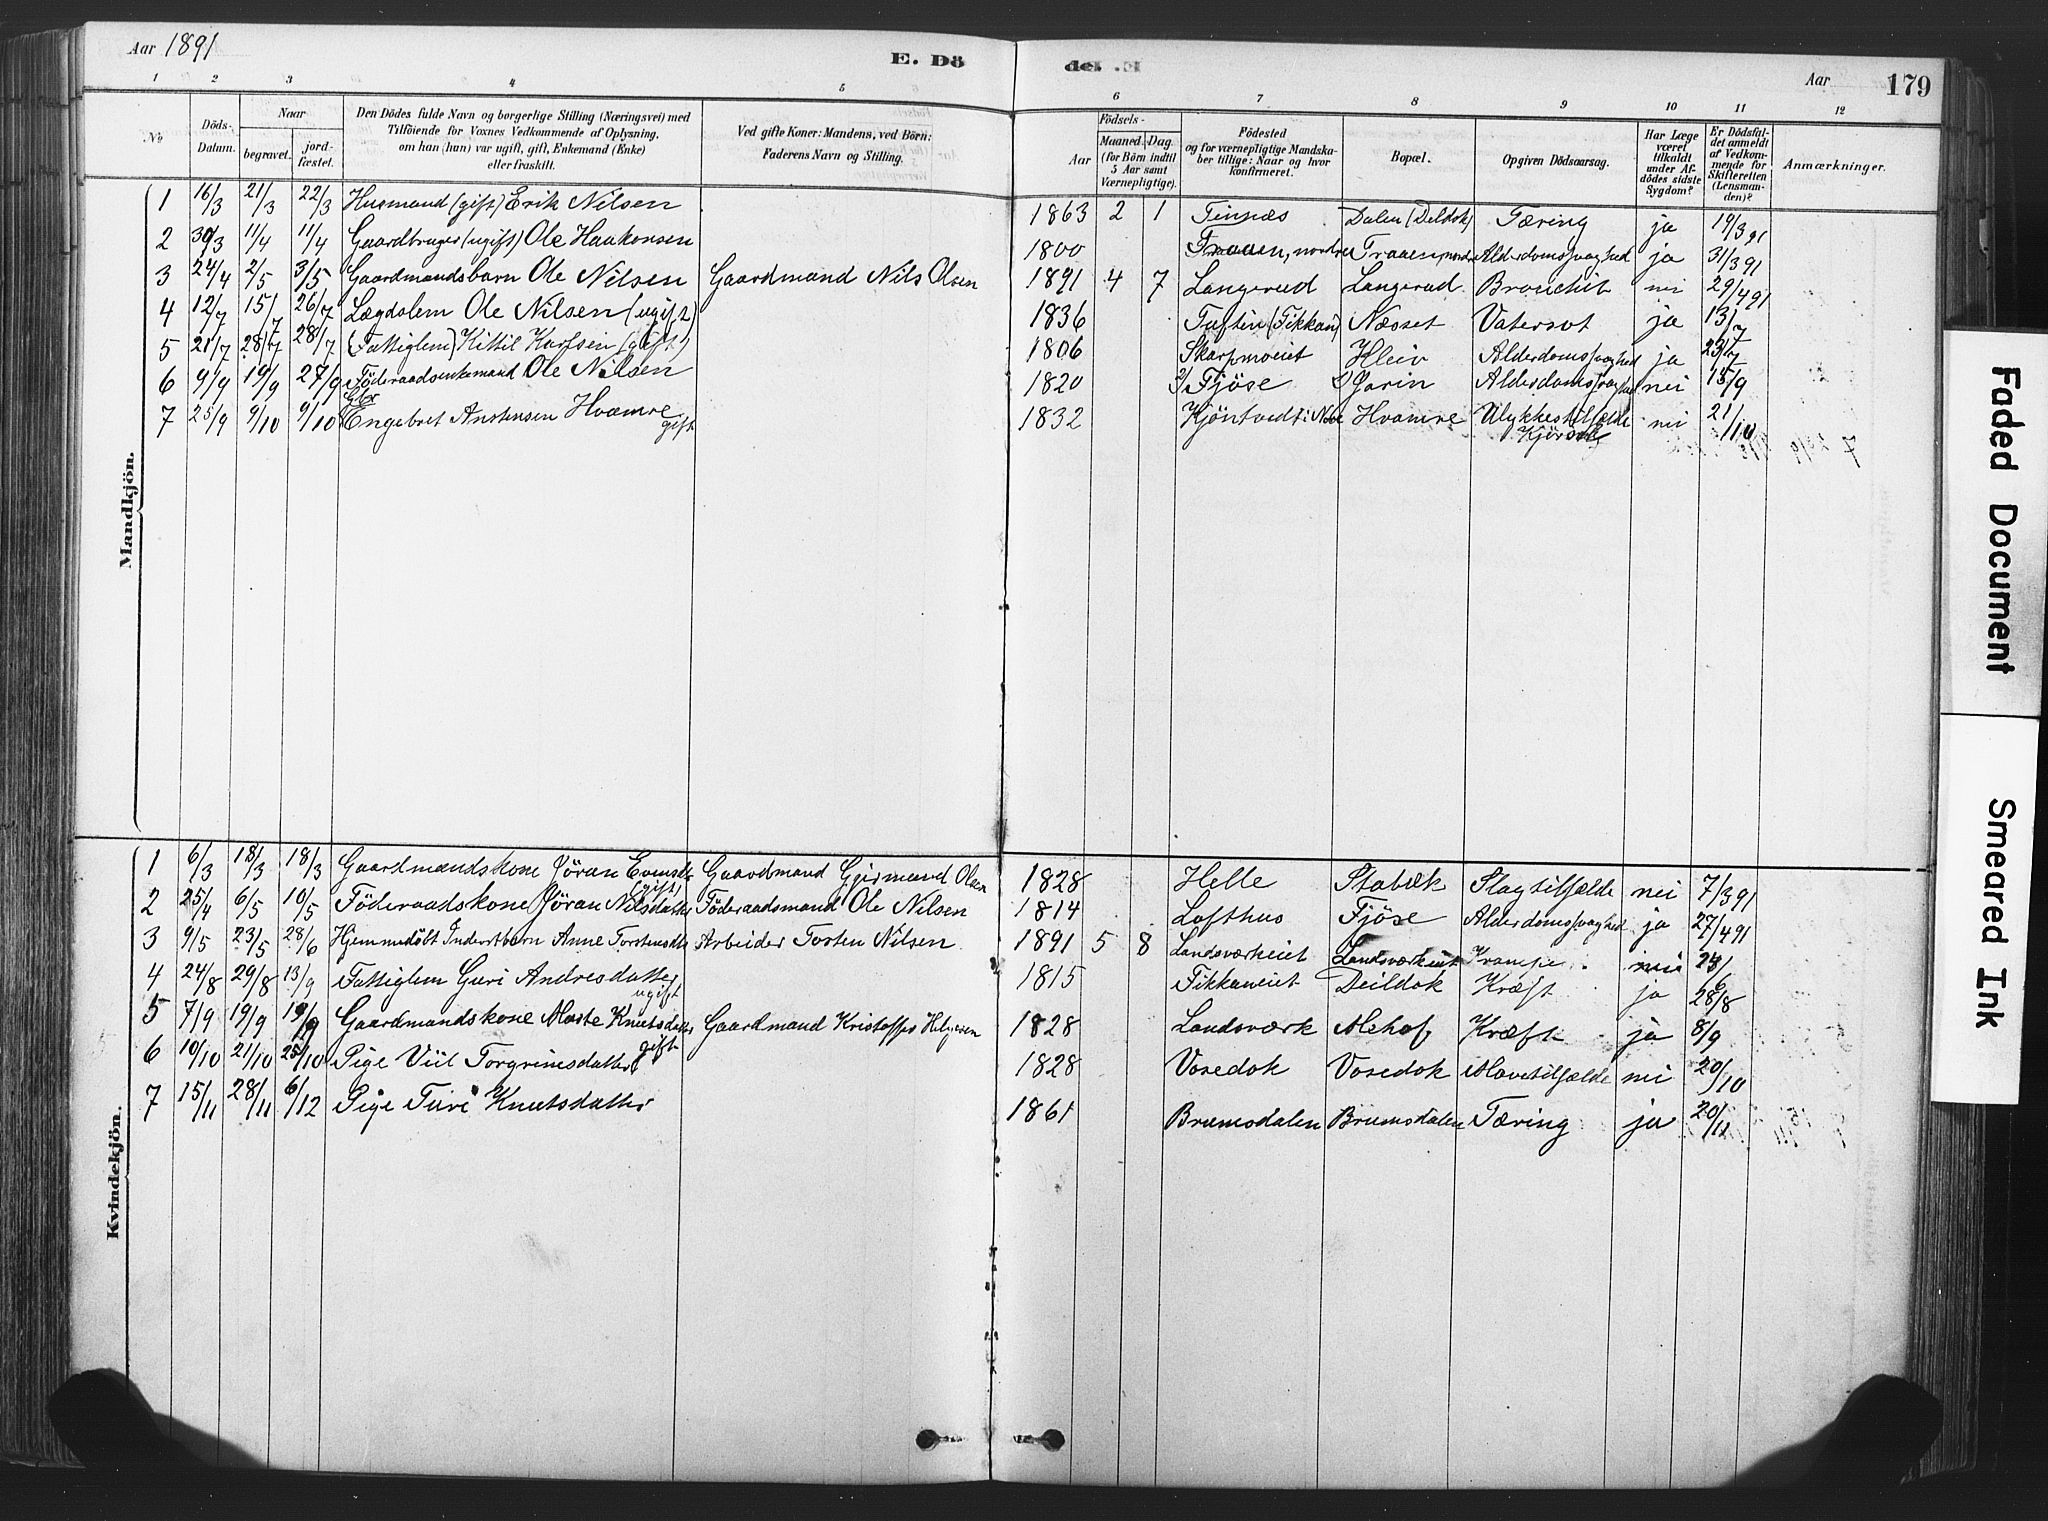 Aar 1891
E. Dö
de.
Aar
179
1 2 3 4 5 6 7 8 9 10 11 12
No
Döds-Datum.
Naar
begravet.
jord-fæstet.
Den Dödes fulde Navn og borgerlige Stilling (Næringsvei) med
Tilföiende for Voxnes Vedkommende af Oplysning,
om han (hun) var ugift, gift, Enkemand (Enke)
eller fraskilt.
Ved gifte Koner: Mandens, ved Börn:
Faderens Navn og Stilling.
Födsels-
Aar
Maaned. Dag.
(for Börn indtil
5 Aar samt
Værnepligtige).
Födested
og for værnepligtige Mandska-
ber tillige: Naar og hvor
konfirmeret.
Bopæl.
Opgiven Dödsaarsag.
Har Læge
været
tilkaldt
under Af-
dödes sidste
Sygdom?
Er Dödsfal-
det anmeldt
af Vedkom-
mende for
Skifteretten
(Lensman-
den)?
Anmærkninger.
Mandkjön.
1 16/3 21/3 22/3 Husmand (gift) Erik Nilsen 1863 2 1 Tinnæs Dalen (Deldok) Tæring ja 19/3 91
2 30/3 11/4 11/4 Gaardbruger (ugift) Ole Haakonsen 1800 Traaen, nordre Traaen, nord Alderdomssvaghed ja 31/3 91
3 24/4 2/5 3/5 Gaardmandsbarn Ole Nilsen Gaardmand Nils Olsen 1891 4 7 Langerud Langerud Bronchit nei 29/4 91
4 12/7 15/7 26/7 Lægdslem Ole Nilsen (ugift) 1836 Tuftin (Tikkan) Næsset Vatersot ja 13/7
5 21/7 28/7 28/7 (Fattiglem) Kittil (gift) 1806 Skarpmoeiet Hleiv Alderdomssvaghed ja 23/7
6 9/9 19/9 27/9 Föderaadsenkemand Ole Nilsen 1820 Fjöse Garin Alderdomssvaghed nei 15/9
7 25/9 9/10 9/10 Gbr Engebret Anstensen Hvamre gift 1832 Kjöntvedt i Hvamre Ulykkestilfælde nei 21/10
Kvindekjön.
1 6/3 18/3 18/3 Gaardmandskone Jöran Evensdt (gift) Gaardmand Gjermand Olsen 1828 Helle Stabæk Slagtilfælde nei 7/3 91
2 25/4 6/5 10/5 Föderaadskone Jöran Nilsdatter Föderaadsmand Ole Nilsen 1814 Lofthus Fjöse Alderdomssvaghed ja 27/4 91
3 9/5 23/5 28/6 Hjemmedöbt Inderstbarn Anne Torstensdtr Arbeider Tosten Nilsen 1891 5 8 Landsværkeiet Landsværkeiet Krampe nei 23/6
4 24/8 29/8 13/9 Fattiglem Guri Andresdatter ugift 1815 Tikkaneiet Deildok Kræft ja 28/8
5 7/9 19/9 19/9 Gaardmandskone Aaste Knutsdatter gift Gaardmand Kristoffer Helgesen 1828 Landsværk Aehof Kræft ja 8/9
6 10/10 21/10 25/10 Pige Viil Torgrimsdatter 1828 Vosedok Vosedok Mavetilfælde nei 20/10
7 15/11 28/11 6/12 Pige Turi Knutsdatter 1861 Brumsdalen Brumsdalen Tæring ja 20/11
Faded Document
Smeared Ink